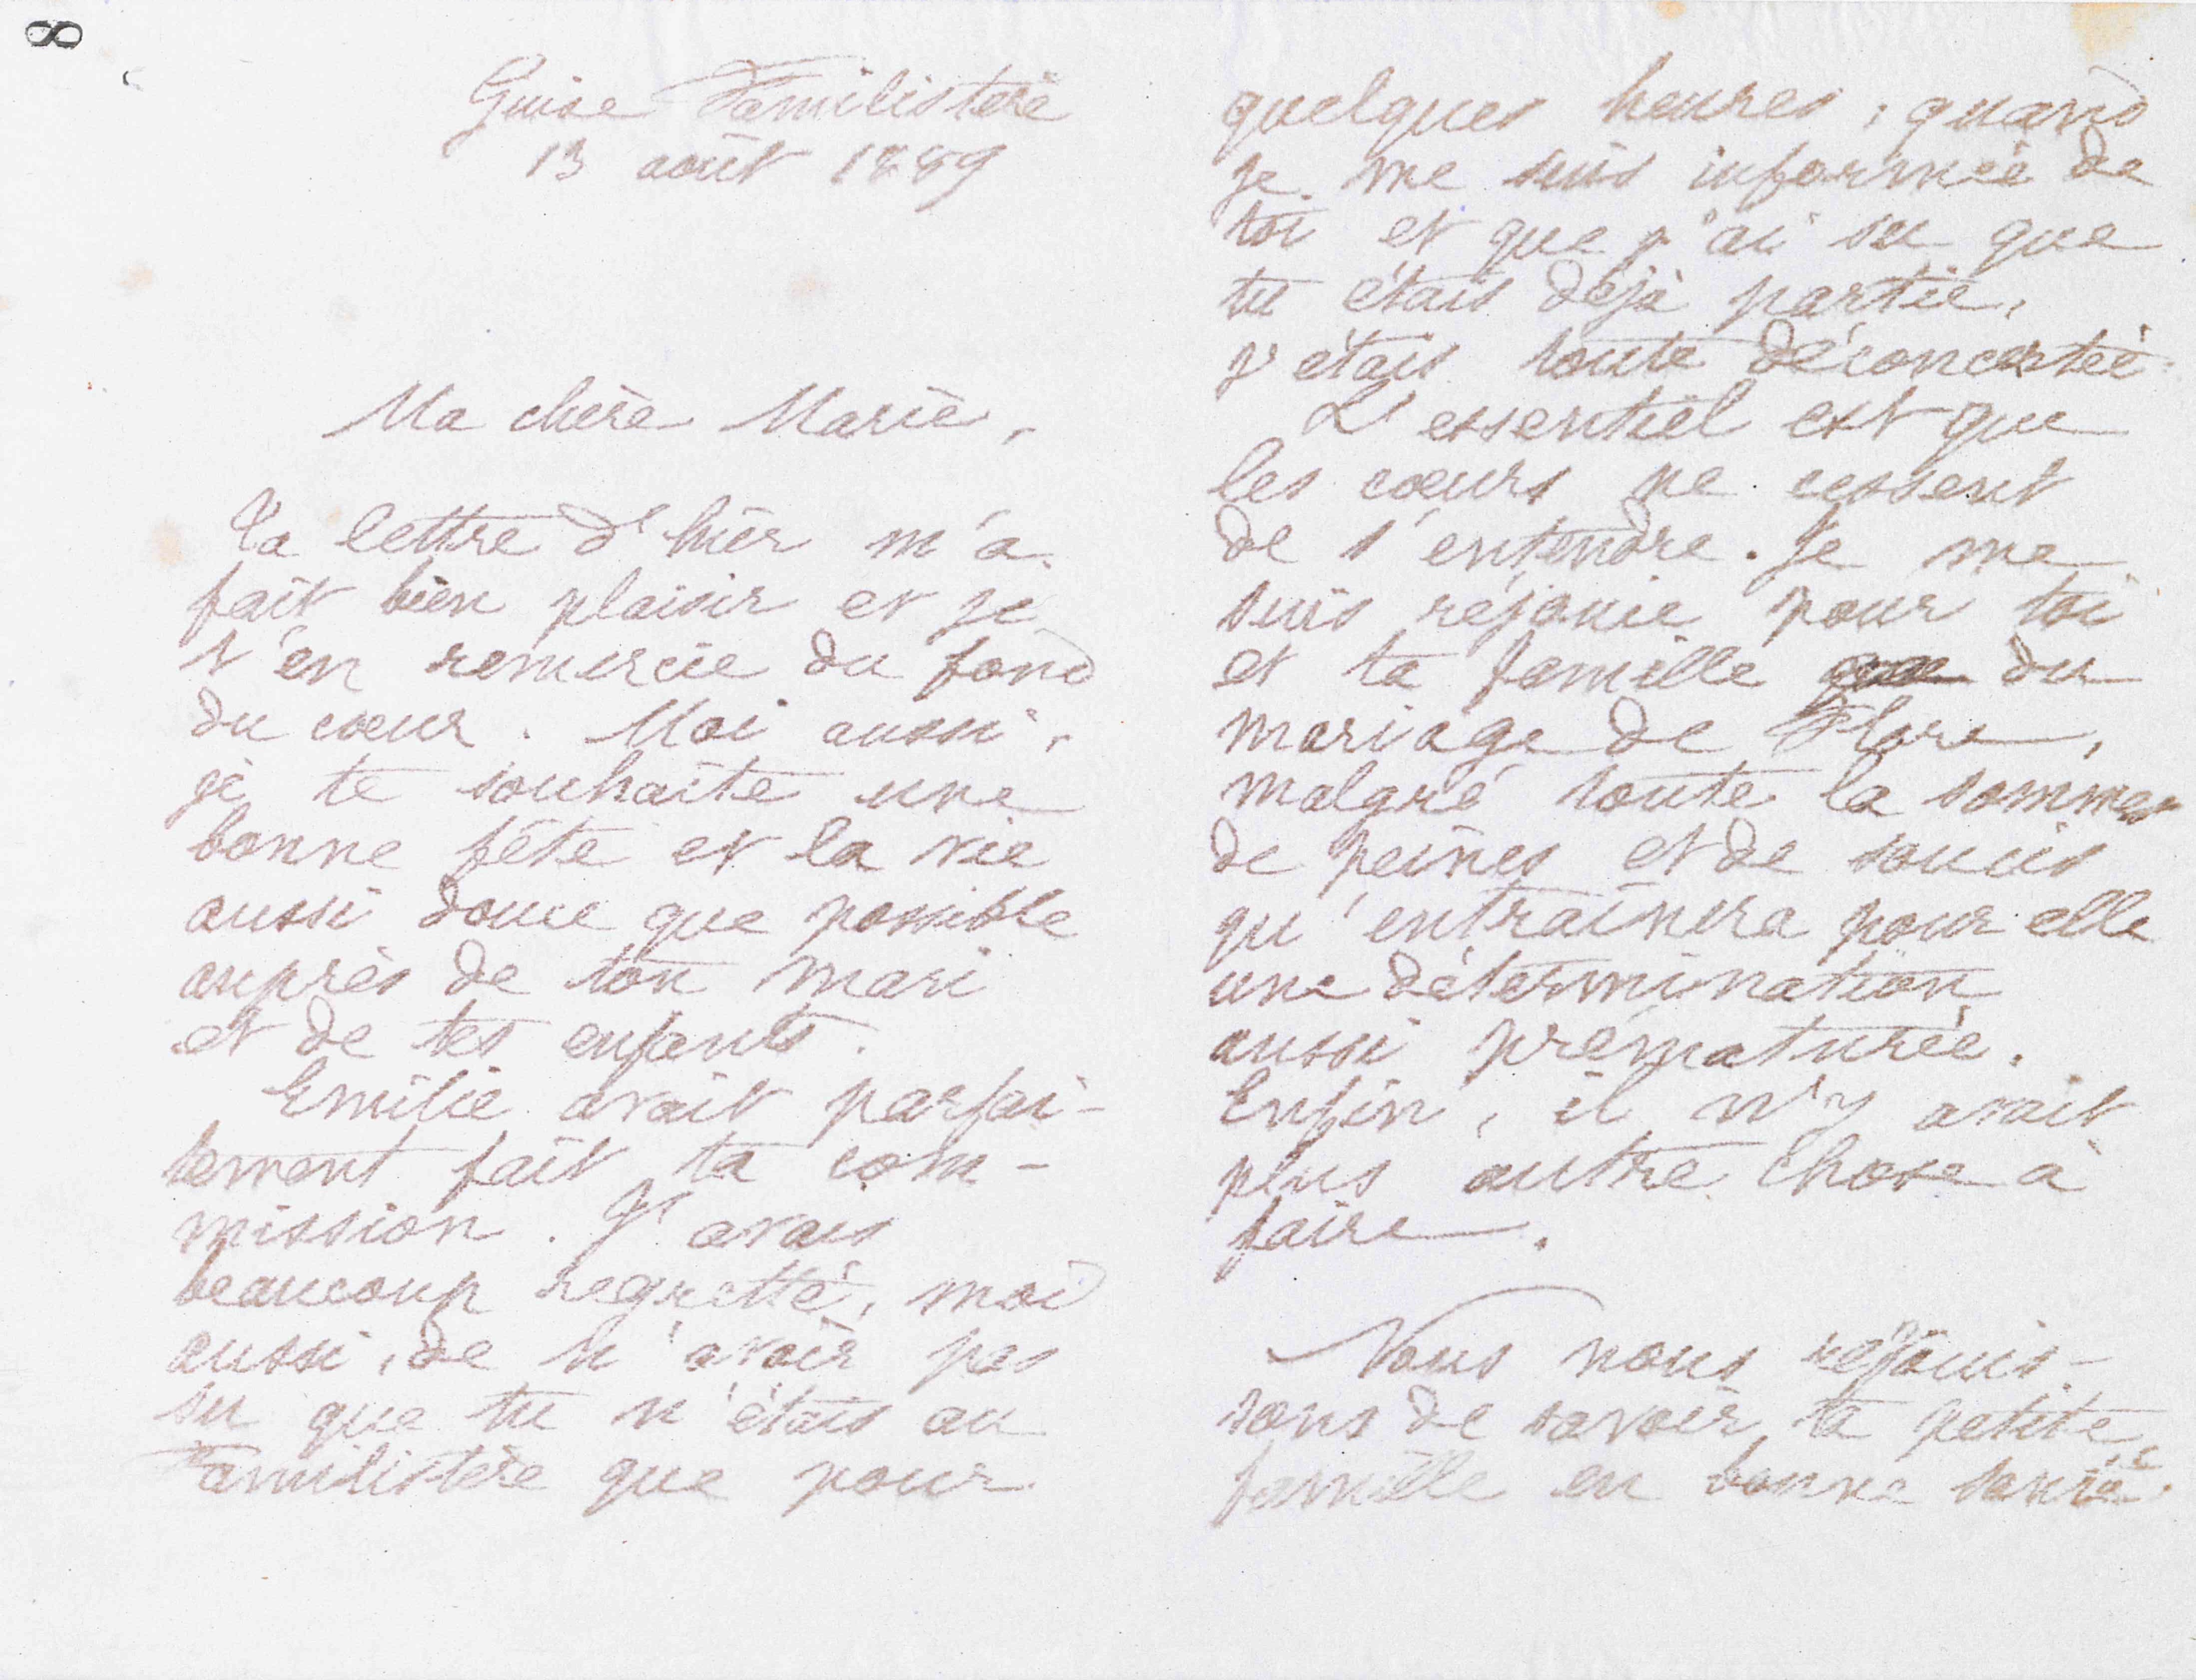 8
Guise Familistère
13 août 1889
Ma chère Marie,
Ta lettre d'hier m'a
fait bien plaisir et je
t'en remercie du fond
du cœur. Moi aussi,
je te souhaite une
bonne fête et la vie
aussi douce que possible
auprès de ton mari
et de tes enfants.
Emilie avait parfai-
tement fait ta com-
mission. J'avais
beaucoup regretté, moi
aussi, de n'avoir pas
su que tu n'étais au
Familistère que pour
quelques heures ; quand
je me suis informée de
toi et que j'ai su que
tu étais déjà partie,
j'étais toute déconcertée.
L'essentiel est que
les cœurs ne cessent
de s'entendre. Je me
suis réjouie pour toi
et ta famille du
mariage de Flore,
malgré toute la somme
de peines et de soucis
qu'entraînera pour elle
une détermination
aussi prématurée.
Enfin, il n'y avait
plus autre chose à
faire.
Nous nous réjouis-
sons de savoir ta petite
famille en bonne santé.